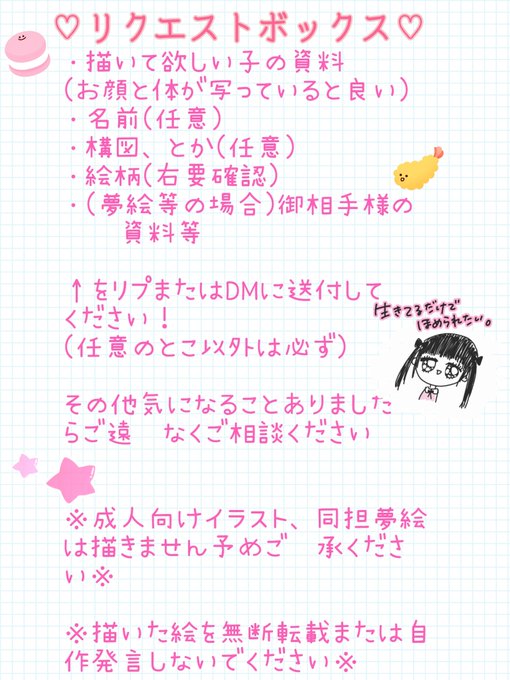 ♡リクエストボックス♡
・描いて欲しい子の資料
(お顔と体が写っていると良い)
・名前(任意)
・構図、とか(任意)
・絵柄(右要確認)
・(夢絵等の場合)御相手様の
資料等
↑をリプまたはDMに送付して
ください！
(任意のとこ以外は必ず)
生きてるだけで
ほめられたい。
その他気になることありました
らご遠 なくご相談ください
※成人向けイラスト、同担夢絵
は描きません予めご 承くださ
い※
※描いた絵を無断転載または自
作発言しないでください※